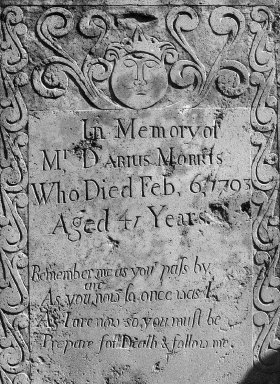 In Memory of
Mr. Darius Morris
Who Died Feb. 6, 1793
Aged 41 Years.
Remember me as you paſs by
As you are now so once was I,
As I are now so, you must be
Prepare for Death & follow me.